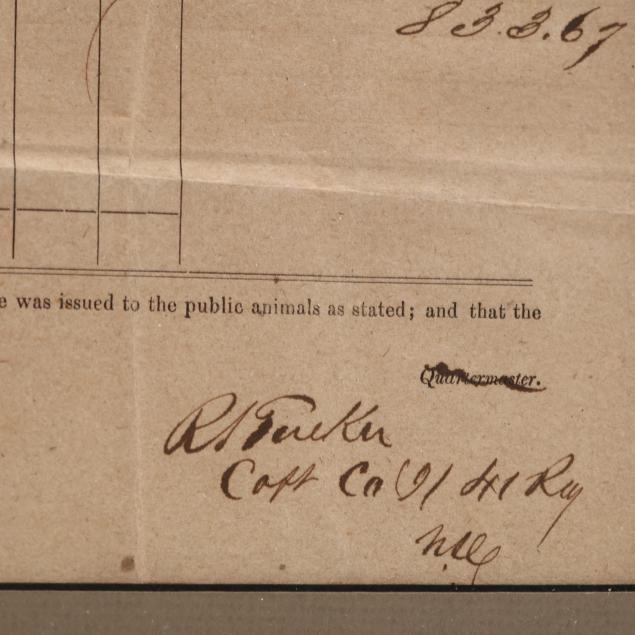 8 3.3.67
e was issued to the public animals as stated; and that the
Quartermaster.
R S Tucker
Capt Co 41 Reg
N.C.